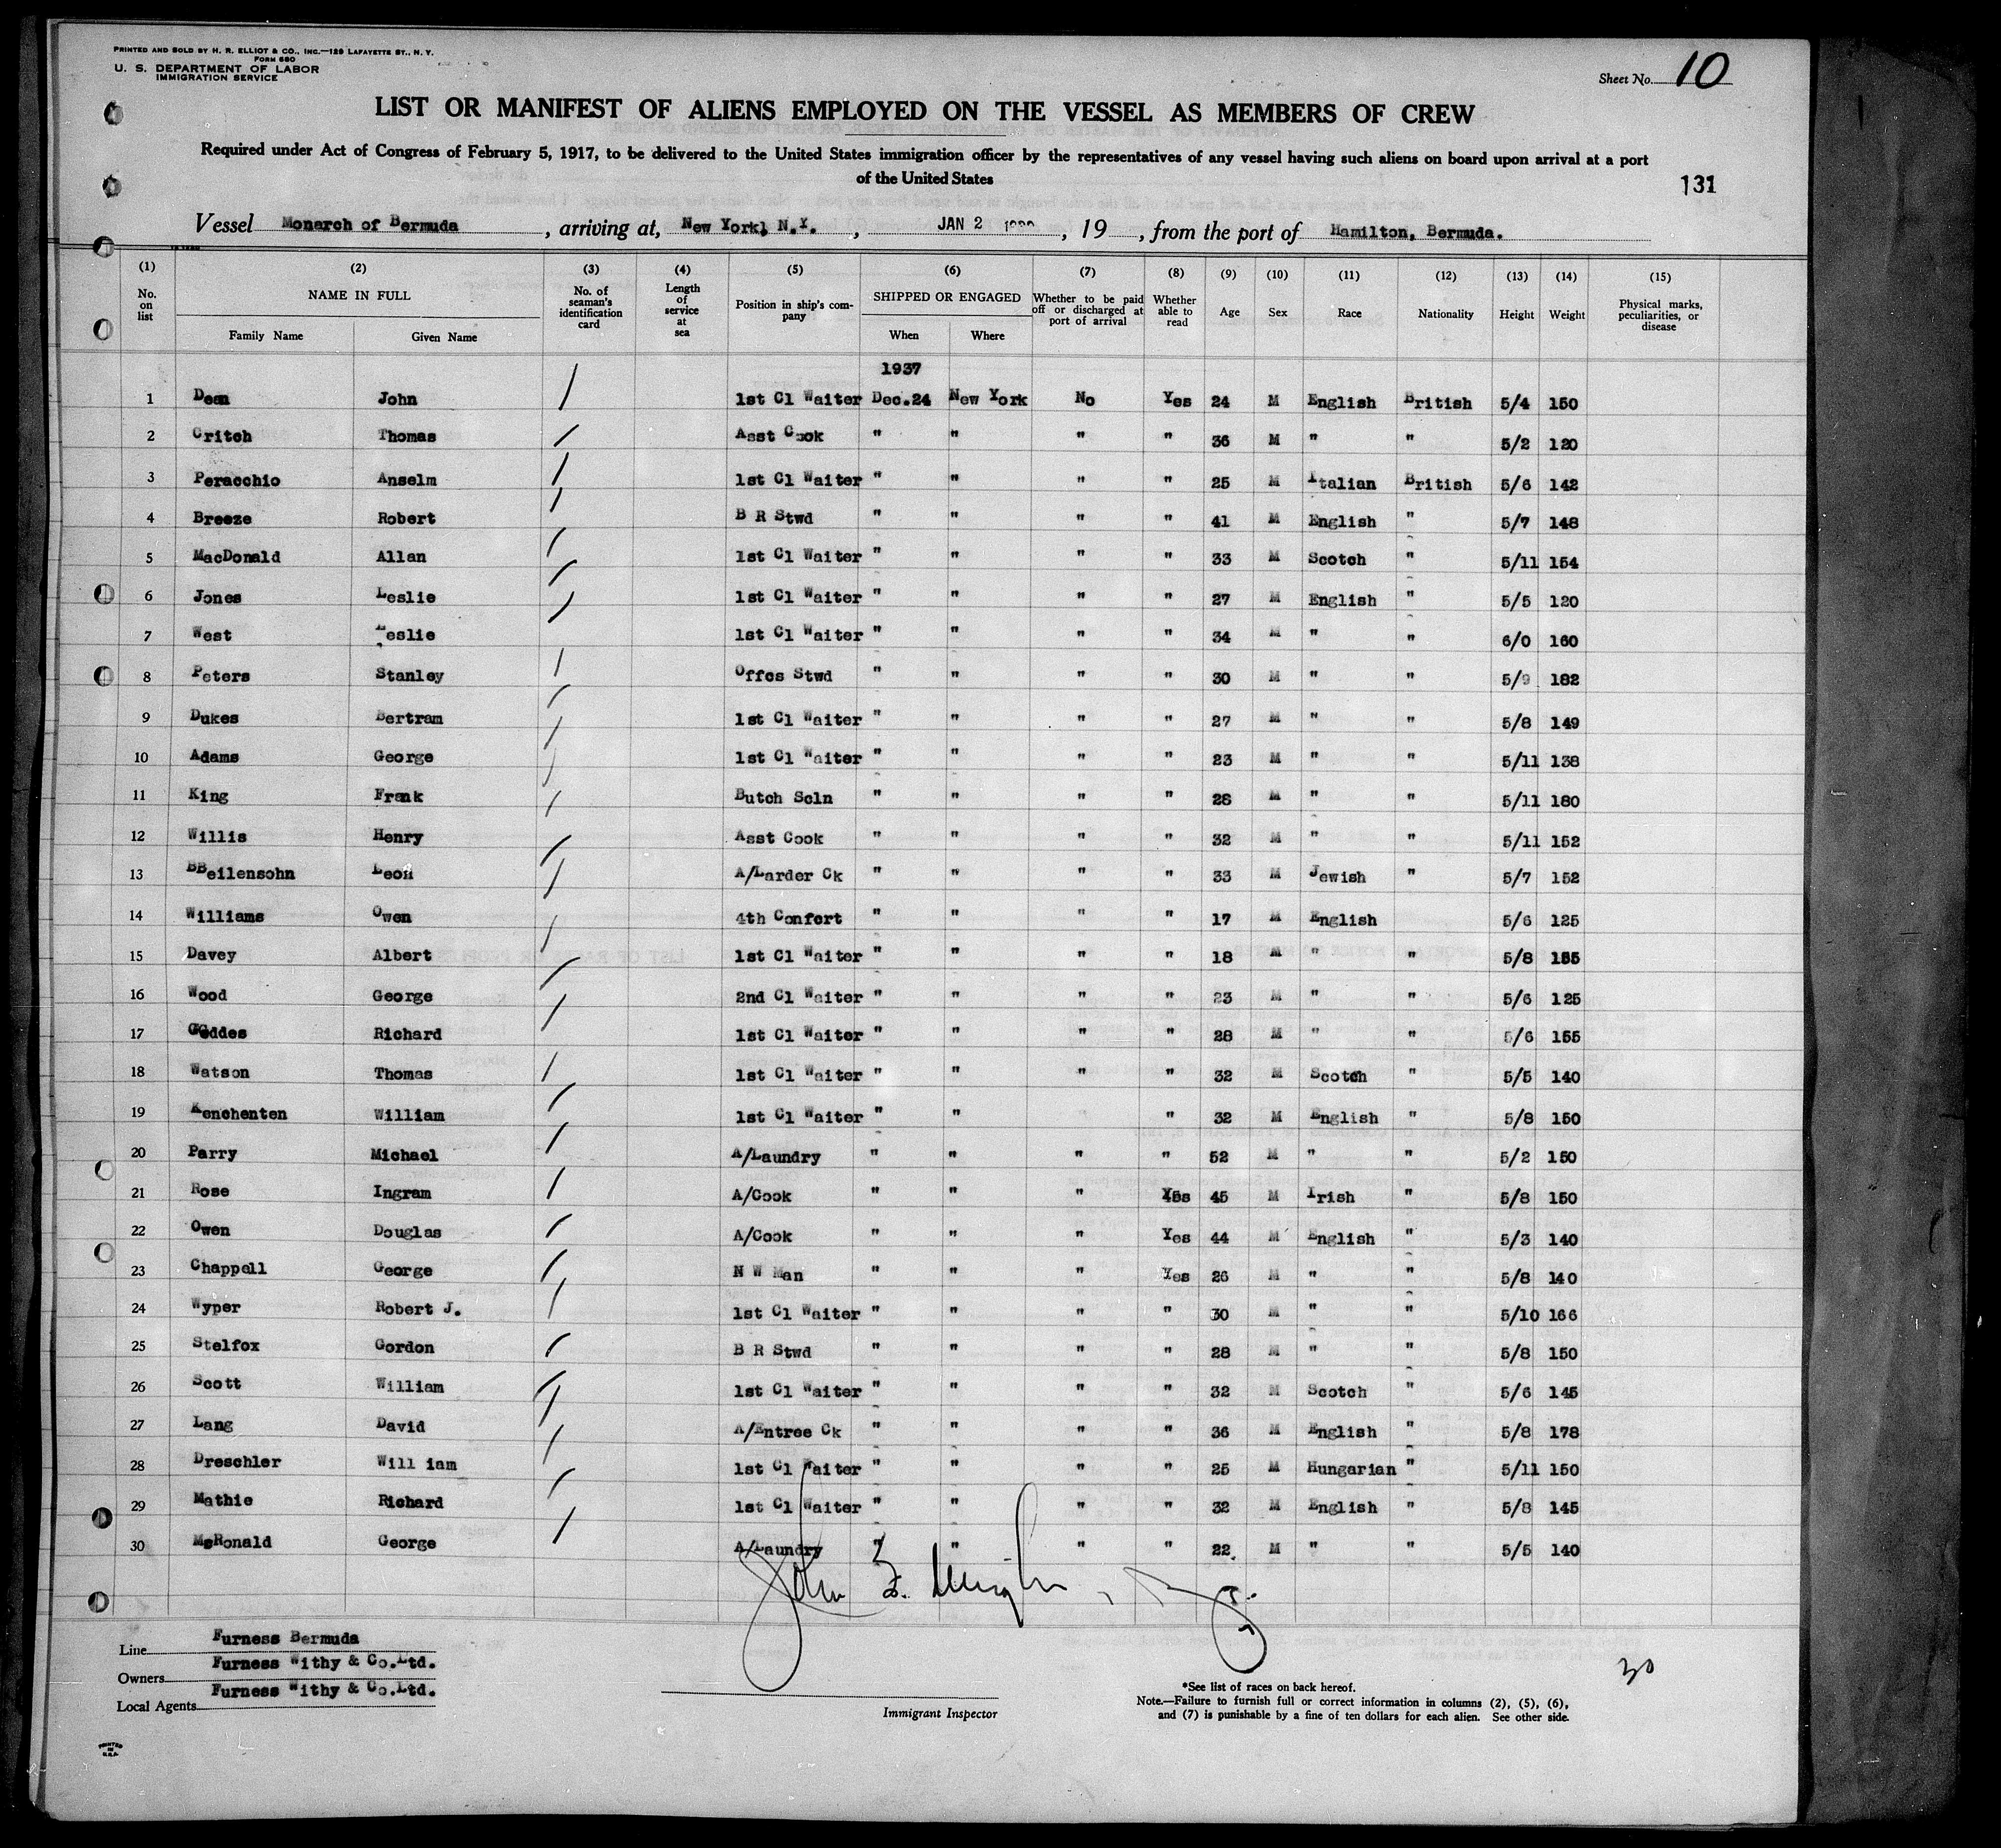 PRINTED AND SOLD BY H. R. ELLIOT & CO., INC.—129 LAFAYETTE ST., N. Y.
FORM 680
U. S. DEPARTMENT OF LABOR
IMMIGRATION SERVICE
Sheet No. 10
LIST OR MANIFEST OF ALIENS EMPLOYED ON THE VESSEL AS MEMBERS OF CREW
Required under Act of Congress of February 5, 1917, to be delivered to the United States immigration officer by the representatives of any vessel having such aliens on board upon arrival at a port
of the United States
131
Vessel Monarch of Bermuda, arriving at, New York, N.Y., JAN 2, 19, from the port of Hamilton, Bermuda.
(1) (2) (3) (4) (5) (6) (7) (8) (9) (10) (11) (12) (13) (14) (15)
No. on list NAME IN FULL No. of seaman's identification card Length of service at sea Position in ship's company SHIPPED OR ENGAGED Whether to be paid off or discharged at port of arrival Whether able to read Age Sex Race Nationality Height Weight Physical marks, peculiarities, or disease
Family Name Given Name When Where
1937
1 Dean John 1st Cl Waiter Dec.24 New York No Yes 24 M English British 5/4 150
2 Critch Thomas Asst Cook " " " " 36 M " " 5/2 120
3 Peracchio Anselm 1st Cl Waiter " " " " 25 M Italian British 5/6 142
4 Breeze Robert B R Stwd " " " " 41 M English " 5/7 148
5 MacDonald Allan 1st Cl Waiter " " " " 33 M Scotch " 5/11 154
6 Jones Leslie 1st Cl Waiter " " " " 27 M English " 5/5 120
7 West Leslie 1st Cl Waiter " " " " 34 M " " 6/0 160
8 Peters Stanley Offcs Stwd " " " " 30 M " " 5/9 182
9 Dukes Bertram 1st Cl Waiter " " " " 27 M " " 5/8 149
10 Adams George 1st Cl Waiter " " " " 23 M " " 5/11 138
11 King Frank Butch Scln " " " " 28 M " " 5/11 180
12 Willis Henry Asst Cook " " " " 32 M " " 5/11 152
13 BBeilensohn Leon A/Larder Ck " " " " 33 M Jewish " 5/7 152
14 Williams Owen 4th Confect " " " " 17 M English " 5/6 125
15 Davey Albert 1st Cl Waiter " " " " 18 M " " 5/8 155
16 Wood George 2nd Cl Waiter " " " " 23 M " " 5/6 125
17 Geddes Richard 1st Cl Waiter " " " " 28 M " " 5/6 155
18 Watson Thomas 1st Cl Waiter " " " " 32 M Scotch " 5/5 140
19 Kenchenten William 1st Cl Waiter " " " 32 M English " 5/8 150
20 Parry Michael A/Laundry " " " " 52 M " " 5/2 150
21 Rose Ingram A/Cook " " " Yes 45 M Irish " 5/8 150
22 Owen Douglas A/Cook " " " Yes 44 M English " 5/3 140
23 Chappell George N W Man " " " Yes 26 M " " 5/8 140
24 Wyper Robert J. 1st Cl Waiter " " " " 30 M " " 5/10 166
25 Stelfox Gordon B R Stwd " " " " 28 M " " 5/8 150
26 Scott William 1st Cl Waiter " " " " 32 M Scotch " 5/6 145
27 Lang David A/Entree Ck " " " " 36 M English " 5/8 178
28 Dreschler Will iam 1st Cl Waiter " " " " 25 M Hungarian " 5/11 150
29 Mathie Richard 1st Cl Waiter " " " " 32 M English " 5/8 145
30 McRonald George A/Laundry " " " " 22 M " " 5/5 140
John
Line Furness Bermuda
Owners Furness Withy & Co.Ltd.
Local Agents Furness Withy & Co.Ltd.
30
Immigrant Inspector
*See list of races on back hereof.
Note.—Failure to furnish full or correct information in columns (2), (5), (6),
and (7) is punishable by a fine of ten dollars for each alien. See other side.
PRINTED IN U.S.A.